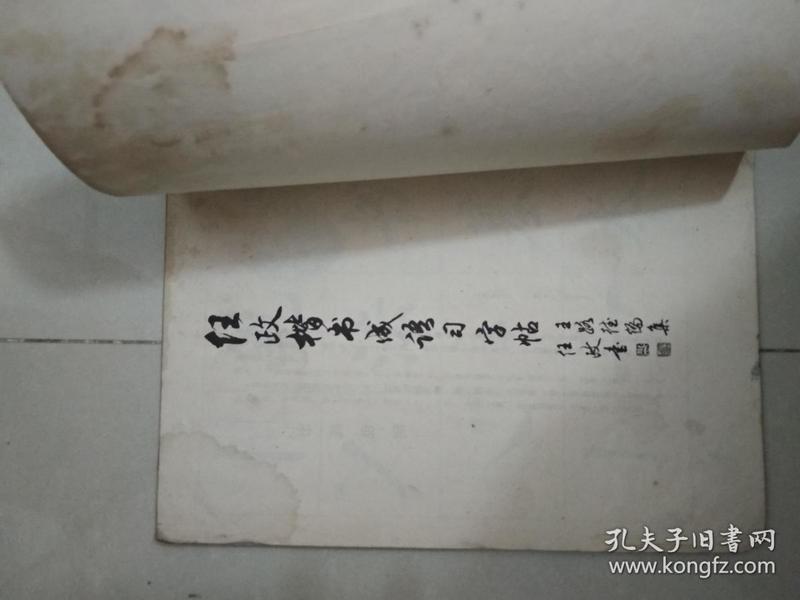 任政楷书成语习字帖
王 桂编集
任政书
孔夫子旧書网
www.kongfz.com